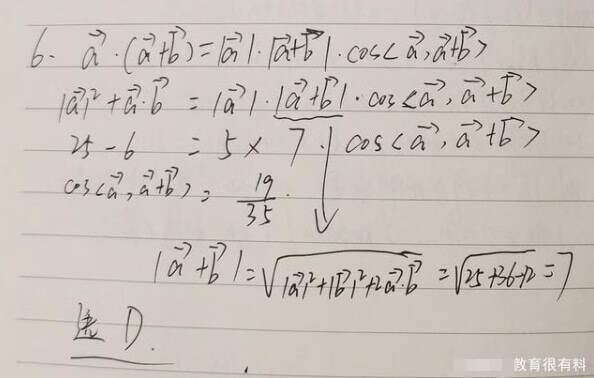 6. a⃗·(a⃗+b⃗)=|a⃗|·|a⃗+b⃗|·cos<a⃗,a⃗+b⃗>
|a⃗|²+a⃗·b⃗ = |a⃗|·|a⃗+b⃗|·cos<a⃗,a⃗+b⃗>
25-6 = 5×7·cos<a⃗,a⃗+b⃗>
cos<a⃗,a⃗+b⃗> = 19/35.
|a⃗+b⃗|=√(|a⃗|²+|b⃗|²+2a⃗·b⃗) =√(25+36-12)=7
选D.
教育很有料